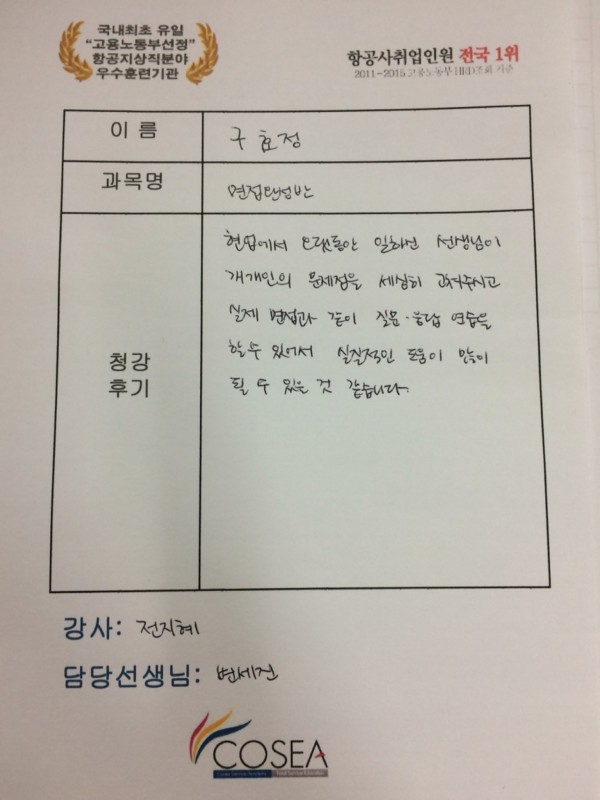 국내최초 유일
"고용노동부선정"
항공지상직분야
우수훈련기관
항공사취업인원 전국 1위
2011~2015 고용노동부 HRD조회 기준
이 름
구 효정
과목명
면접완성반
청강
후기
현업에서 오랫동안 일하신 선생님이
개개인의 문제점을 세심히 고쳐주시고
실제 면접과 같이 질문·응답 연습을
할 수 있어서 실질적인 도움이 많이
될 수 있는 것 같습니다.
강사: 전지혜
담당선생님: 변세진
COSEA